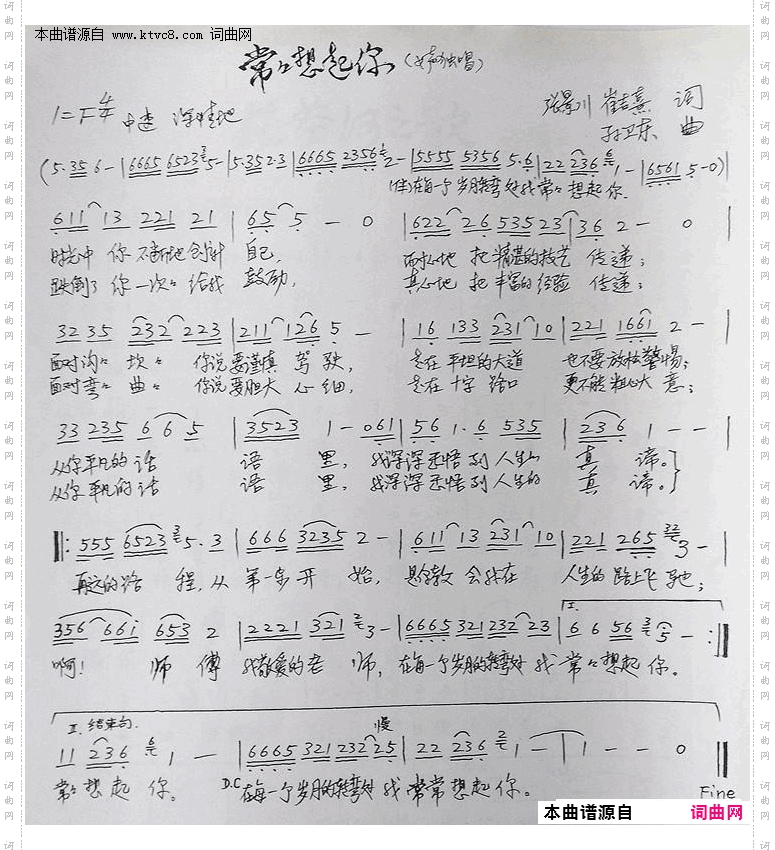 本曲谱源自 www.ktvc8.com 词曲网
常常想起你（女声独唱）
1=F 4/4 中速 深情地
张景川 崔吉熹 词
孙卫东 曲
(5·35 6 - | 6665 6523 5 - | 5·35 2·3 | 6665 2356 2 - | 5555 5356 5·6 | 22 236 1 - | 6561 5 - 0)
(伴)在每一个岁月转弯处我常々想起你.
611 13 221 21 | 65 5 - 0 | 622 26 535 23 | 36 2 - 0 |
时光中 你不断地 自己, 耐心地 把精湛的技艺 传递;
跌倒了 你一次々给我 鼓励, 真心地 把丰富的经验 传递;
32 35 232 223 | 211 126 5 - | 16 133 231 10 | 221 1661 2 - |
面对沟々坎々 你说要谨慎 驾驶, 走在 平坦的大道 也不要放松警惕;
面对弯々曲々 你说要胆大 心细, 走在 十字路口 更不能粗心大意;
33 235 6 6 5 | 3523 1 - 061 | 56 1·6 535 | 236 1 - - |
从你平凡的话 语 里, 我深深悉悟到人生 真 谛。
从你平凡的话 语 里, 我深深悉悟到人生的 真 谛。
‖: 555 6523 5·3 | 666 3235 2 - | 611 13 231 10 | 221 265 3 - |
再远的路 程,从 第一步开 始, 是您教 会我在 人生的路上飞驰;
356 661 653 2 | 2221 321 3 - | 6665 321 232 23 | I. 6 6 56 5 - :‖
啊! 师 傅 我敬爱的老 师, 在每一个岁月的转弯处 我常々想起你。
II. 结束句. 慢
11 236 1 - | 6665 321 232 25 | 22 236 1 - | 1 - - 0 ‖
常々想起 你。 D.C 在每一个岁月的转弯处 我常常想起你。
Fine
本曲谱源自 词曲网